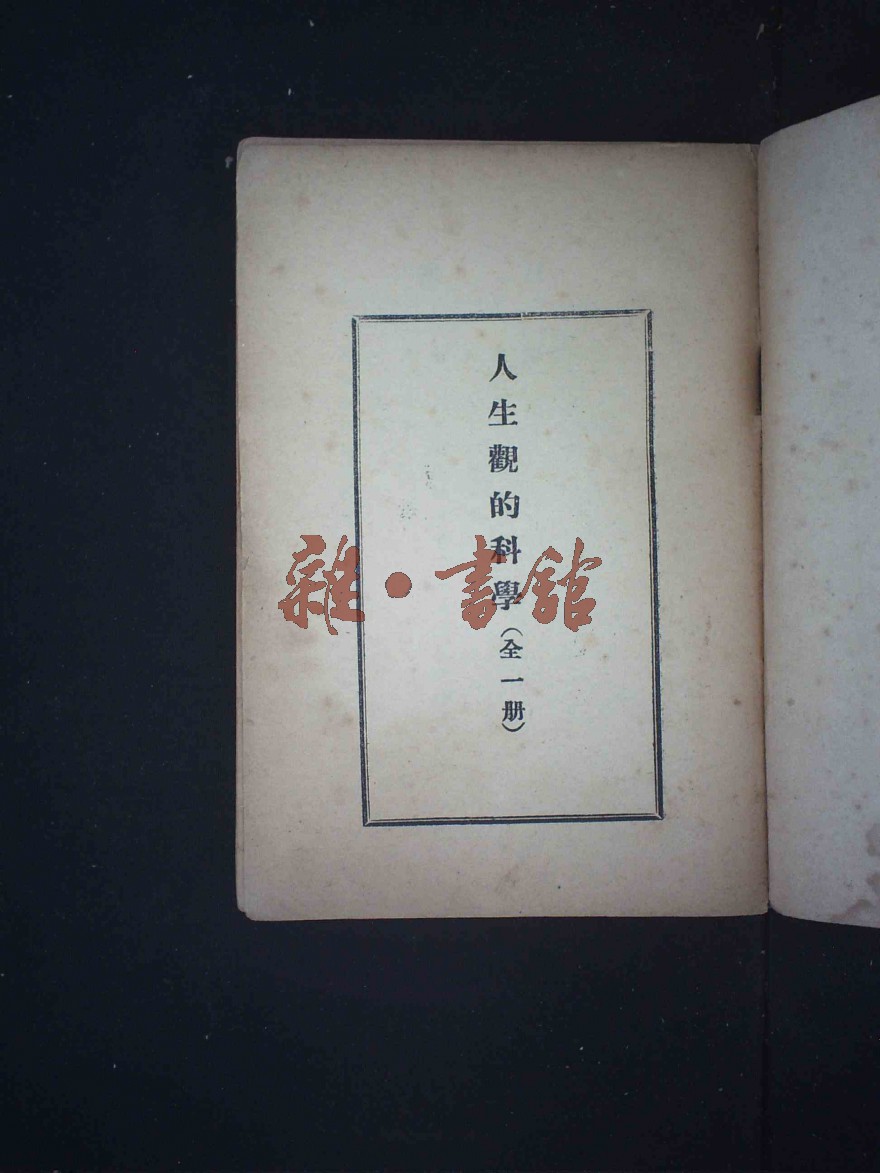 人生觀的科學(全一册)
雜·書舘